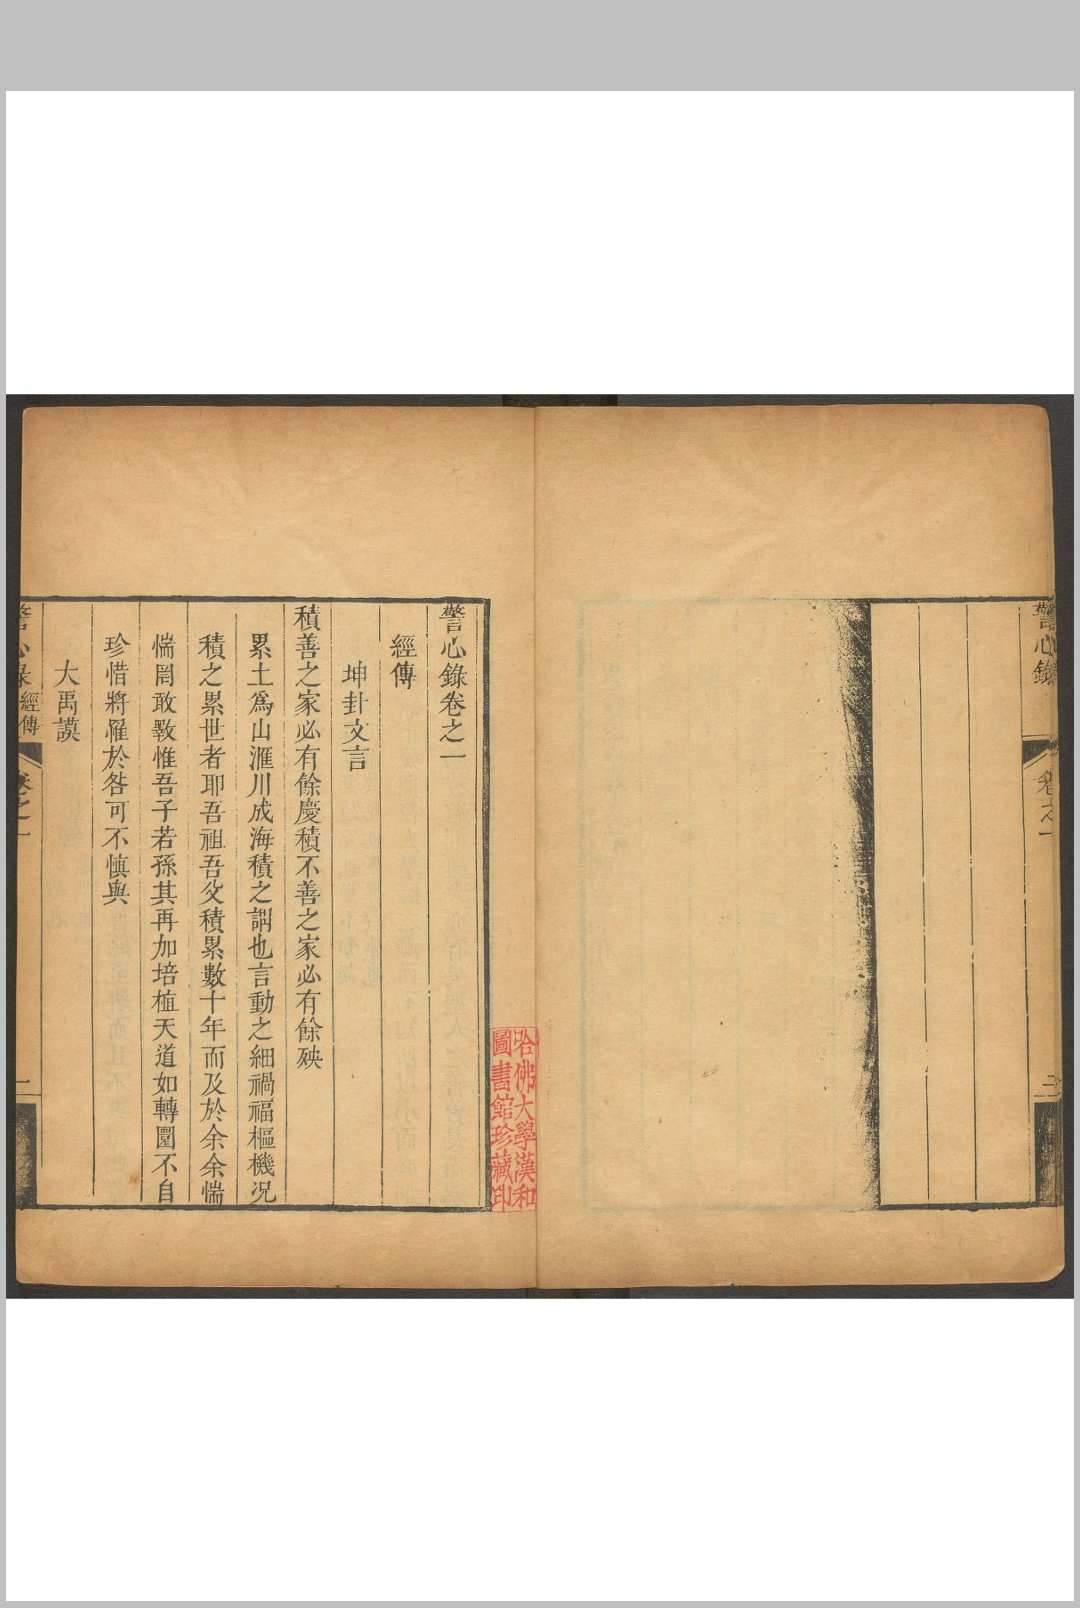 警心錄
卷之一
三
警心錄卷之一
經傳
坤卦文言
積善之家必有餘慶積不善之家必有餘殃
累土爲山滙川成海積之謂也言動之細禍福樞機况
積之累世者耶吾祖吾父積累數十年而及於余余惴
惴罔敢斁惟吾子若孫其再加培植天道如轉圜不自
珍惜將罹於咎可不慎與
大禹謨
警心錄 經傳
卷之一
一
哈佛大學漢和
圖書館珍藏印